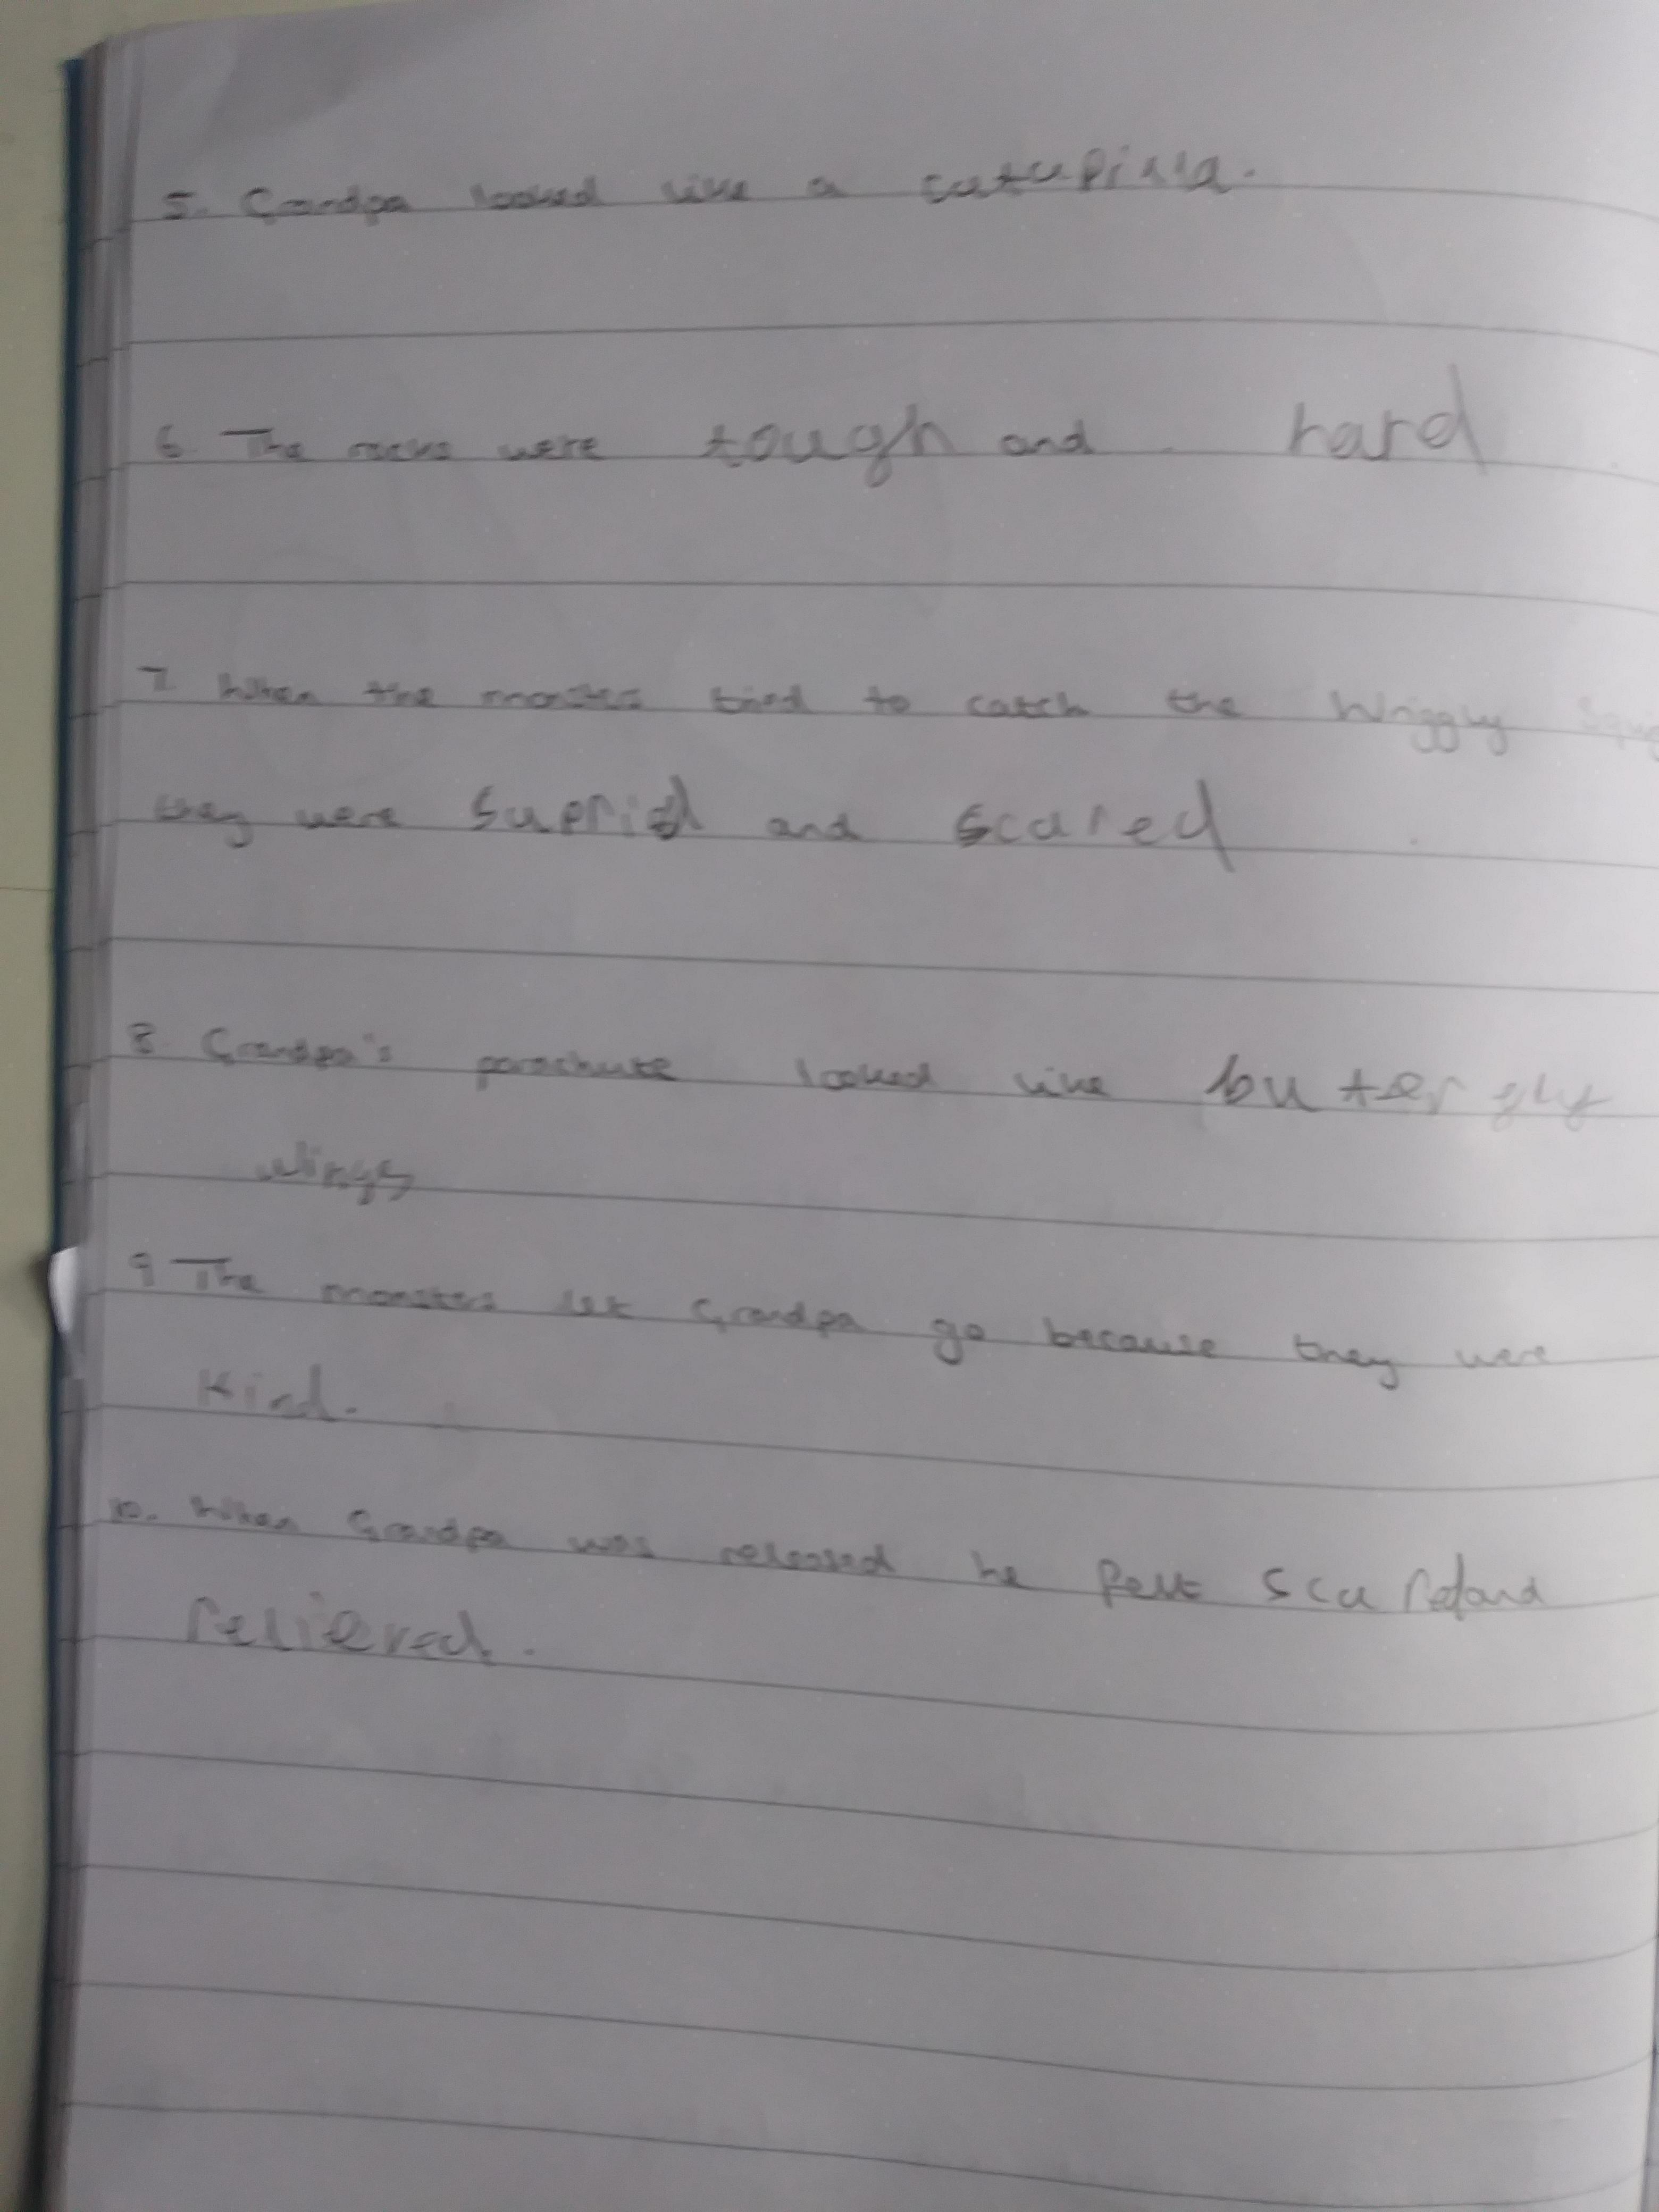 5. Grandpa looked like a catupilla.
6. The rocks were tough and hard
7. When the monsters tried to catch the Wriggly
they were suprisd and scared
8. Grandpa's parachute looked like buterfly
wings
9 The monsters let Grandpa go because they were
Kind.
10. When Grandpa was released he felt scared and
relieved.